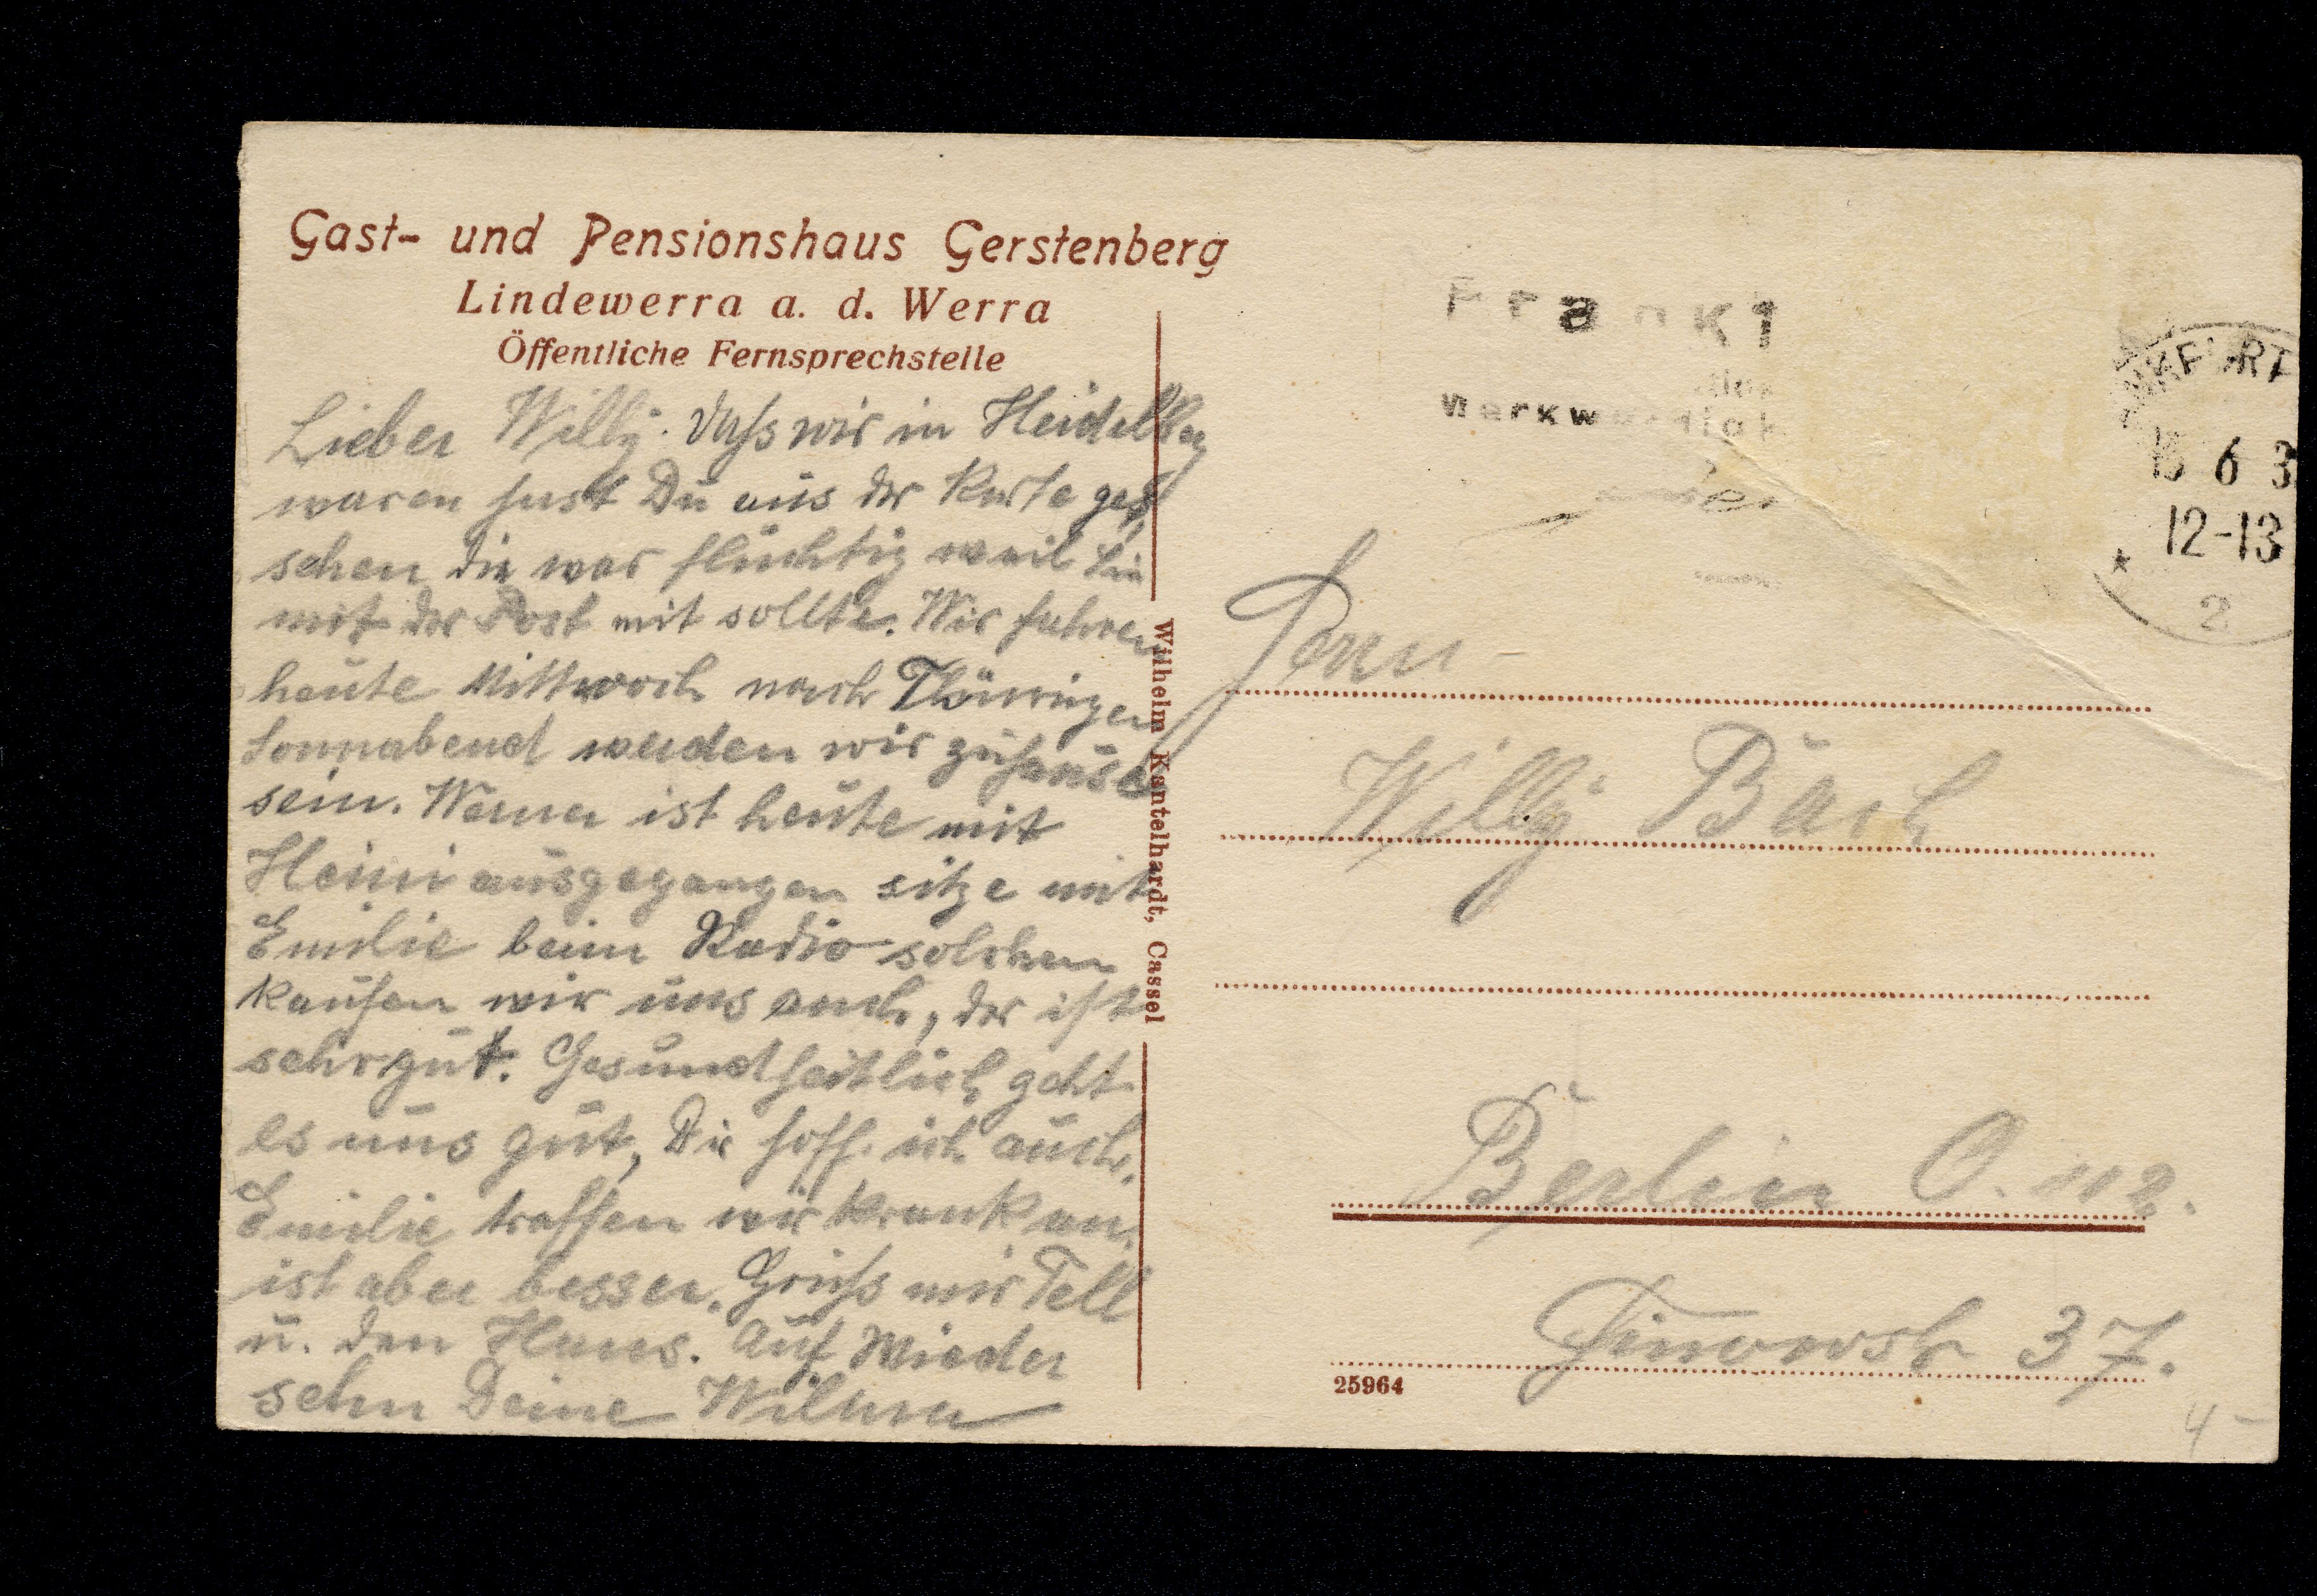 Gast- und Pensionshaus Gerstenberg
Lindewerra a. d. Werra
Öffentliche Fernsprechstelle
Lieber Willy. Dass wir in Heidelberg
waren hast Du aus der Karte ge-
sehen die war flüchtig weil sie
mit der Post mit sollte. Wir fuhren
heute Mittwoch nach Thüringen
Sonnabend werden wir zuhause
sein. Werner ist heute mit
Heini ausgegangen sitze mit
Emilie beim Radio solchen
kaufen wir uns auch, der ist
sehr gut. Gesundheitlich geht
es uns gut, Dir hoff. ich auch.
Emilie traffen wir krank an,
ist aber besser. Grüss mir Tell
u. den Hans. Auf Wieder
sehn Deine Wilma
Wilhelm Kantelhardt, Cassel
Frankf
6 3
12-13
* 2
Herrn
Willy Bach
Berlin O. 112.
Finowstr 37.
25964
4 –